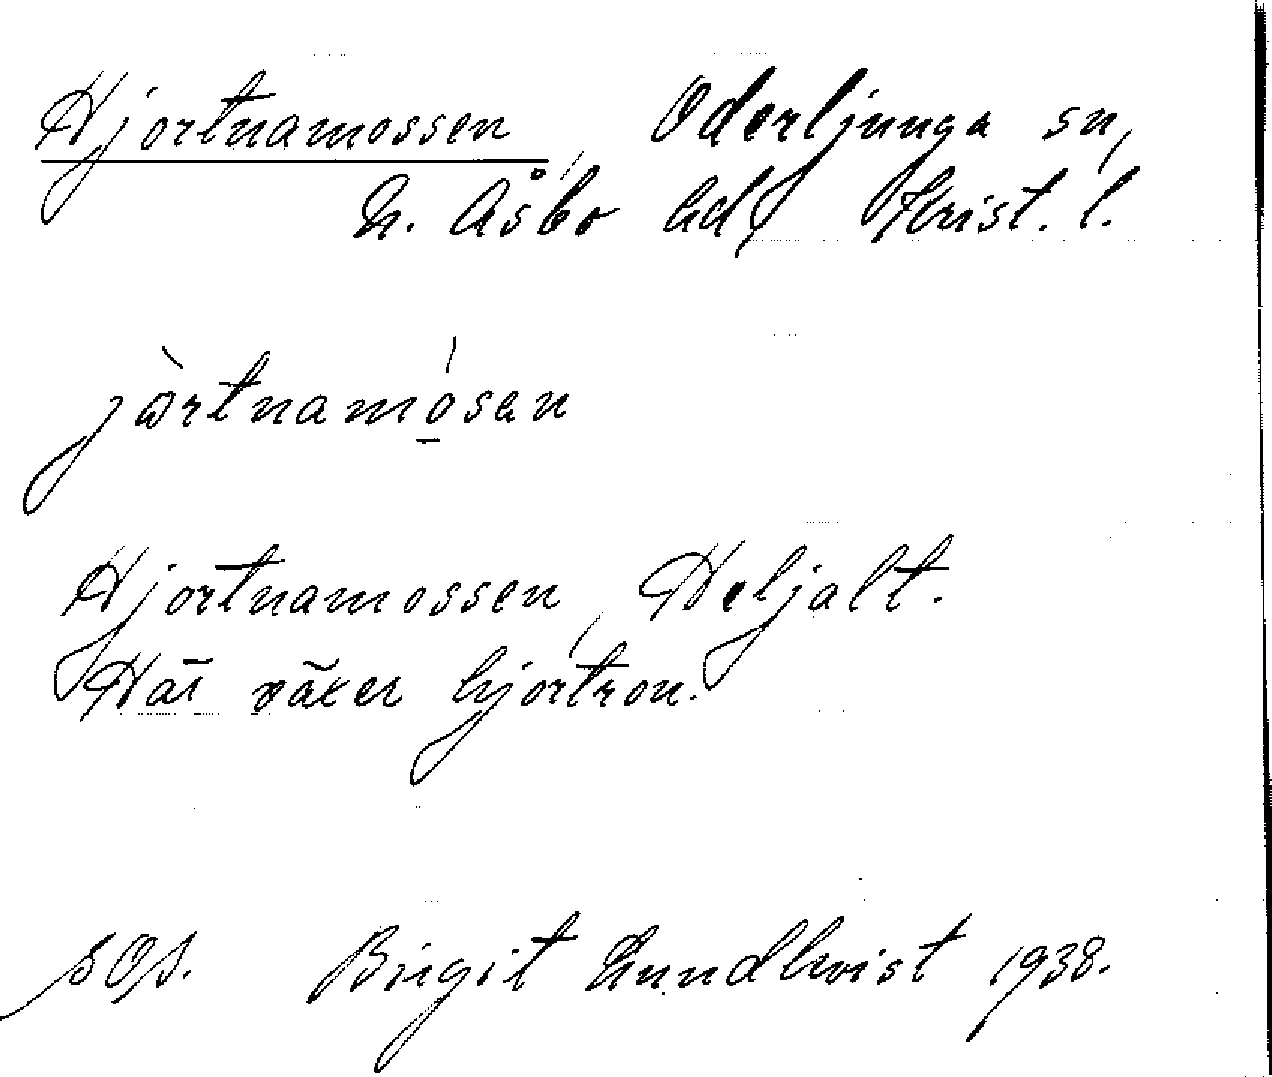 Hjortnamossen, Oderljunga sn,
N. Åsbo hd, Krist. l.
jòrtnamósen
Hjortnamossen, Heljalt.
Här växer hjortron.
Birgit Lundkvist 1938.